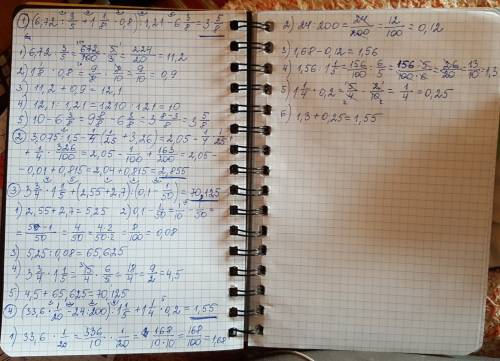 ① (6,72 : 3/5 + 1 1/8 · 0,8) : 1,21 - 6 3/8 = 3 5/8
1) 6,72 : 3/5 = 672/100 · 5/3 = 224/20 = 11,2
2) 1 1/8 · 0,8 = 9/8 · 8/10 = 9/10 = 0,9
3) 11,2 + 0,9 = 12,1
4) 12,1 : 1,21 = 1210 : 121 = 10
5) 10 - 6 3/8 = 9 8/8 - 6 3/8 = 3 8-3/8 = 3 5/8
② 3,075 : 1,5 - 1/4 (1/25 + 3,26) = 2,05 - 1/4 · 1/25 +
+ 1/4 · 326/100 = 2,05 - 1/100 + 163/200 = 2,05 -
- 0,01 + 0,815 = 2,04 + 0,815 = 2,855
③ 3 3/4 · 1 1/5 + (2,55 + 2,7) : (0,1 - 1/50) = 70,125
1) 2,55 + 2,7 = 5,25 2) 0,1 - 1/50 = 1/10 - 1/50 =
= 5-1/50 = 4/50 = 4·2/50·2 = 8/100 = 0,08
3) 5,25 : 0,08 = 65,625
4) 3 3/4 · 1 1/5 = 15/4 · 6/5 = 18/4 = 9/2 = 4,5
5) 4,5 + 65,625 = 70,125
④ (33,6 · 1/20 - 24 : 200) : 1 1/5 + 1 1/4 · 0,2 = 1,55
1) 33,6 · 1/20 = 336/10 · 1/20 = 168/10·10 = 168/100 = 1,68
2) 24 : 200 = 24/200 = 12/100 = 0,12
3) 1,68 - 0,12 = 1,56
4) 1,56 : 1 1/5 = 156/100 : 6/5 = 156·5/100·6 = 26/20 = 13/10 = 1,3
5) 1 1/4 · 0,2 = 5/4 · 2/10 = 1/4 = 0,25
6) 1,3 + 0,25 = 1,55